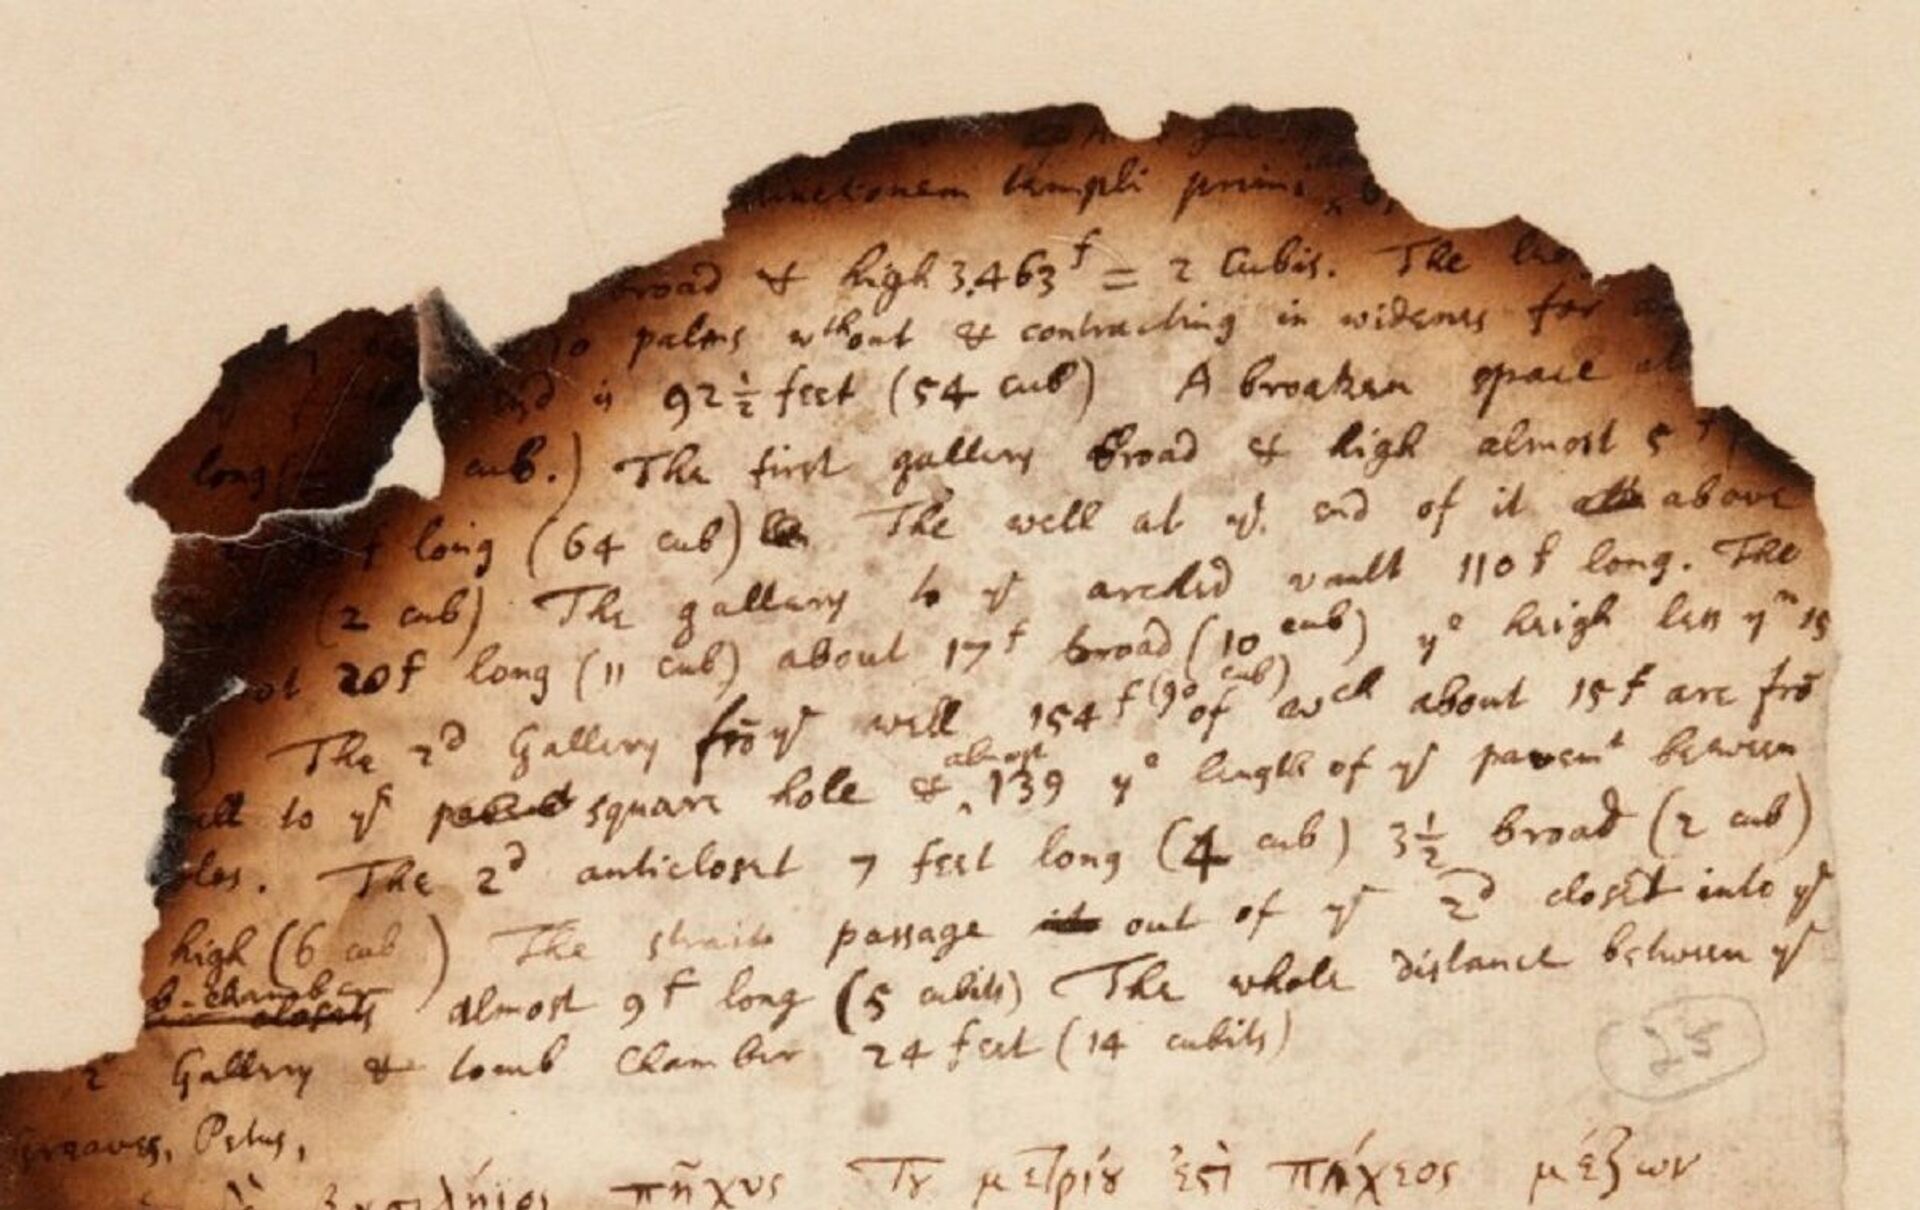 templi primi
broad & high 3.463f = 2 Cubis. The
10 palms wthout & contracting in wideness for
end is 92 1/2 feet (54 cub) A broaken space
long cub.) The first gallery broad & high almost 5
f long (64 cub) The well at ye. end of it above
(2 cub) The gallery to ye arched vault 110f long. The
20f long (11 cub) about 17f broad (10 cub) ye heigh less yn 15
) The 2d Gallery frō ye well 154f (90 cub) of wch about 15f are frō
to ye square hole & almost 139 ye length of ye pavemt between
The 2d anticloset 7 feet long (4 cub) 3 1/2 broad (2 cub)
high (6 cub) The strait passage out of ye 2d closet into ye
almost 9f long (5 cubits) The whole distance between ye
2 Gallery & tomb chamber 24 feet (14 cubits)
25
Greaves, Petus,
πῆχυς Τȣ μετρίȣ ἐστὶ πήχεος μέζων